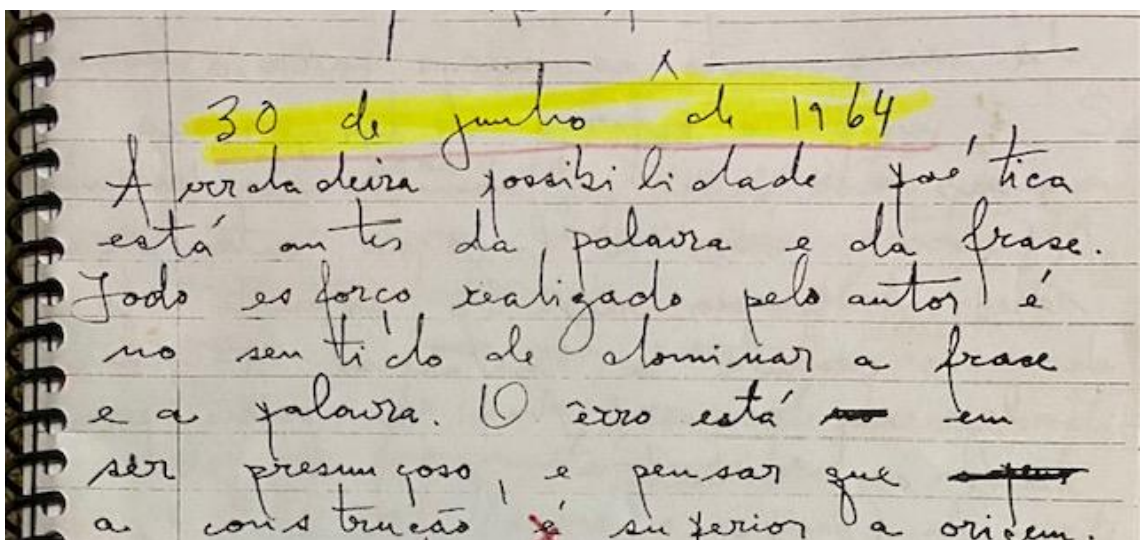 30 de junho de 1964
A verdadeira possibilidade poética
está antes da palavra e da frase.
Todo esforço realizado pelo autor é
no sentido de dominar a frase
e a palavra. O êrro está em
ser presunçoso, e pensar que
a construção é superior a origem.